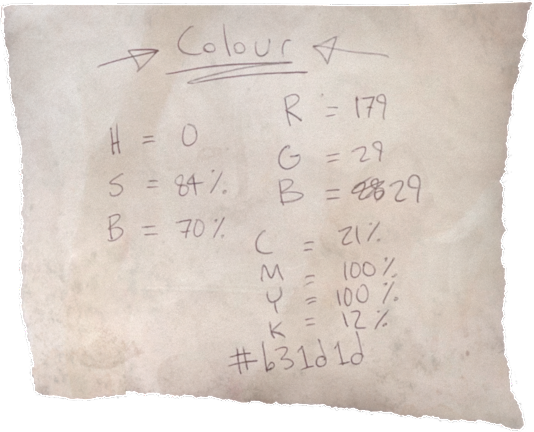 Colour
H = 0
S = 84%
B = 70%
R = 179
G = 29
B = 29
C = 21%
M = 100%
Y = 100%
K = 12%
#b31d1d